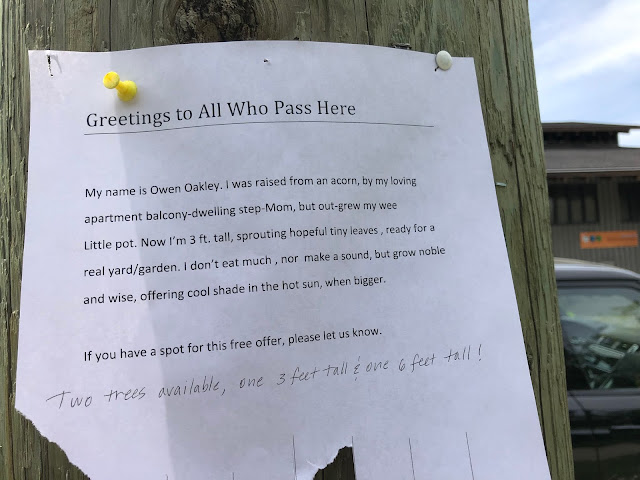 Greetings to All Who Pass Here
My name is Owen Oakley. I was raised from an acorn, by my loving
apartment balcony-dwelling step-Mom, but out-grew my wee
Little pot. Now I'm 3 ft. tall, sprouting hopeful tiny leaves , ready for a
real yard/garden. I don't eat much , nor make a sound, but grow noble
and wise, offering cool shade in the hot sun, when bigger.
If you have a spot for this free offer, please let us know.
Two trees available, one 3 feet tall & one 6 feet tall !